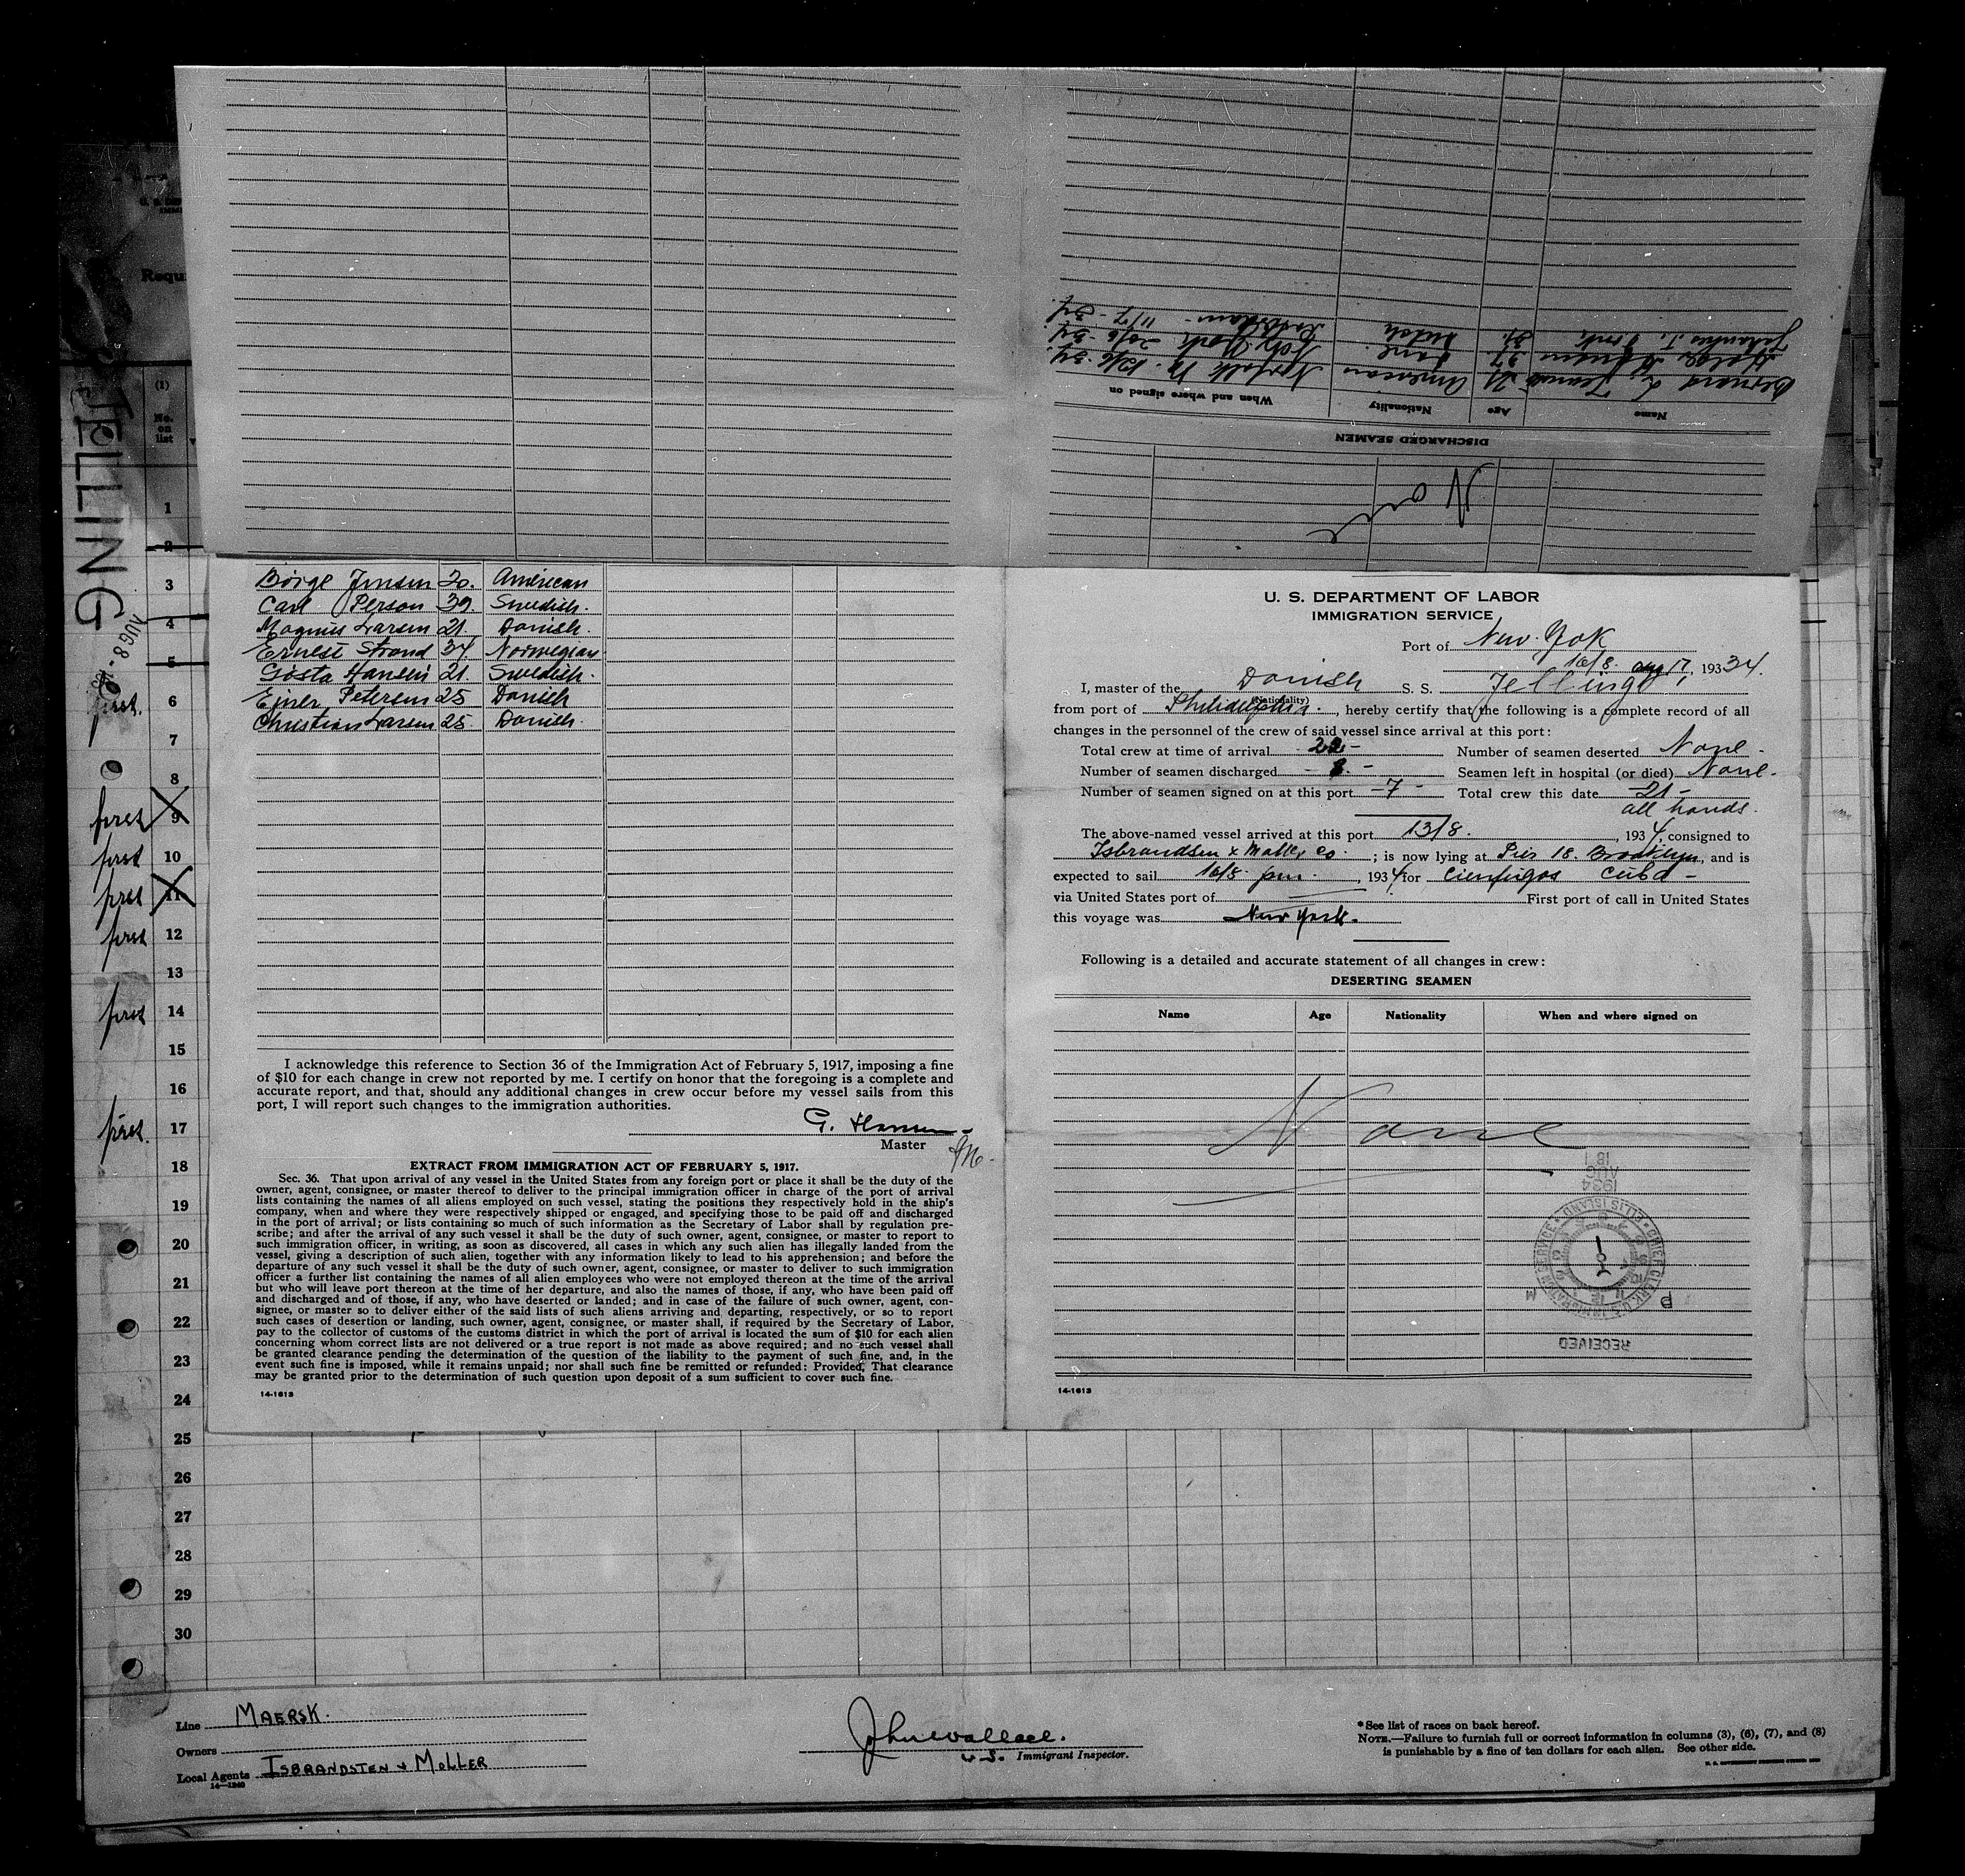 JELLING
AUG 8 -
Requ
(1)
No.
on
list
1
2
3
4
5
6
7
8
9
10
11
12
13
14
15
16
17
18
19
20
21
22
23
24
25
26
27
28
29
30
first.
first
first
first
first
first
first.
When and where signed on
Nationality
Age
Name
Bernard L. 21 American Norfolk Va. 12/6-34.
Holge 37 Dane. New York 20/6-34.
Johannes J. 31. Dutch 11/7-34.
DISCHARGED SEAMEN
None
Börge Jensen 20. American
Carl Person 39. Swedish.
Magnus Larsen 21. Danish.
Ernest Strand 34. Norwegian
Gösta Hansen 21. Swedish.
Ejner Petersen 25 Danish
Christian Larsen 25. Danish.
I acknowledge this reference to Section 36 of the Immigration Act of February 5, 1917, imposing a fine
of $10 for each change in crew not reported by me. I certify on honor that the foregoing is a complete and
accurate report, and that, should any additional changes in crew occur before my vessel sails from this
port, I will report such changes to the immigration authorities.
G. Hansen
Master
EXTRACT FROM IMMIGRATION ACT OF FEBRUARY 5, 1917.
Sec. 36. That upon arrival of any vessel in the United States from any foreign port or place it shall be the duty of the
owner, agent, consignee, or master thereof to deliver to the principal immigration officer in charge of the port of arrival
lists containing the names of all aliens employed on such vessel, stating the positions they respectively hold in the ship's
company, when and where they were respectively shipped or engaged, and specifying those to be paid off and discharged
in the port of arrival; or lists containing so much of such information as the Secretary of Labor shall by regulation pre-
scribe; and after the arrival of any such vessel it shall be the duty of such owner, agent, consignee, or master to report to
such immigration officer, in writing, as soon as discovered, all cases in which any such alien has illegally landed from the
vessel, giving a description of such alien, together with any information likely to lead to his apprehension; and before the
departure of any such vessel it shall be the duty of such owner, agent, consignee, or master to deliver to such immigration
officer a further list containing the names of all alien employees who were not employed thereon at the time of the arrival
but who will leave port thereon at the time of her departure, and also the names of those, if any, who have been paid off
and discharged and of those, if any, who have deserted or landed; and in case of the failure of such owner, agent, con-
signee, or master so to deliver either of the said lists of such aliens arriving and departing, respectively, or so to report
such cases of desertion or landing, such owner, agent, consignee, or master shall, if required by the Secretary of Labor,
pay to the collector of customs of the customs district in which the port of arrival is located the sum of $10 for each alien
concerning whom correct lists are not delivered or a true report is not made as above required; and no such vessel shall
be granted clearance pending the determination of the question of the liability to the payment of such fine, and, in the
event such fine is imposed, while it remains unpaid; nor shall such fine be remitted or refunded: Provided, That clearance
may be granted prior to the determination of such question upon deposit of a sum sufficient to cover such fine.
14-1613
U. S. DEPARTMENT OF LABOR
IMMIGRATION SERVICE
Port of New. Yok
16/8. aug 17, 1934.
I, master of the Danish S. S. Jelling,
(Nationality)
from port of Philidelphia., hereby certify that the following is a complete record of all
changes in the personnel of the crew of said vessel since arrival at this port:
Total crew at time of arrival 22- Number of seamen deserted None-
Number of seamen discharged - 8. - Seamen left in hospital (or died) None.
Number of seamen signed on at this port -7- Total crew this date -21-
all hands.
The above-named vessel arrived at this port 13/8., 1934, consigned to
Isbrandsen & Moller Co.; is now lying at Pier 18. Brooklyn, and is
expected to sail 16/8 pm., 1934 for Cienfugos Cuba -
via United States port of First port of call in United States
this voyage was New York.
Following is a detailed and accurate statement of all changes in crew:
DESERTING SEAMEN
Name Age Nationality When and where signed on
None
1934
AUG
18
CHIEF CLERK U.S. IMMIGRATION SERVICE ELLIS ISLAND
RECEIVED
14-1613
Line MAERSK.
Owners
Local Agents ISBRANDSTEN & MOLLER
14-1240
John Wallace.
U.S. Immigrant Inspector.
*See list of races on back hereof.
NOTE.—Failure to furnish full or correct information in columns (3), (6), (7), and (8)
is punishable by a fine of ten dollars for each alien. See other side.